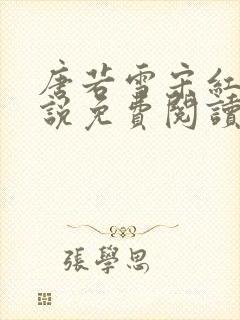 唐若雪宋紅
說免費閱讀
張學思